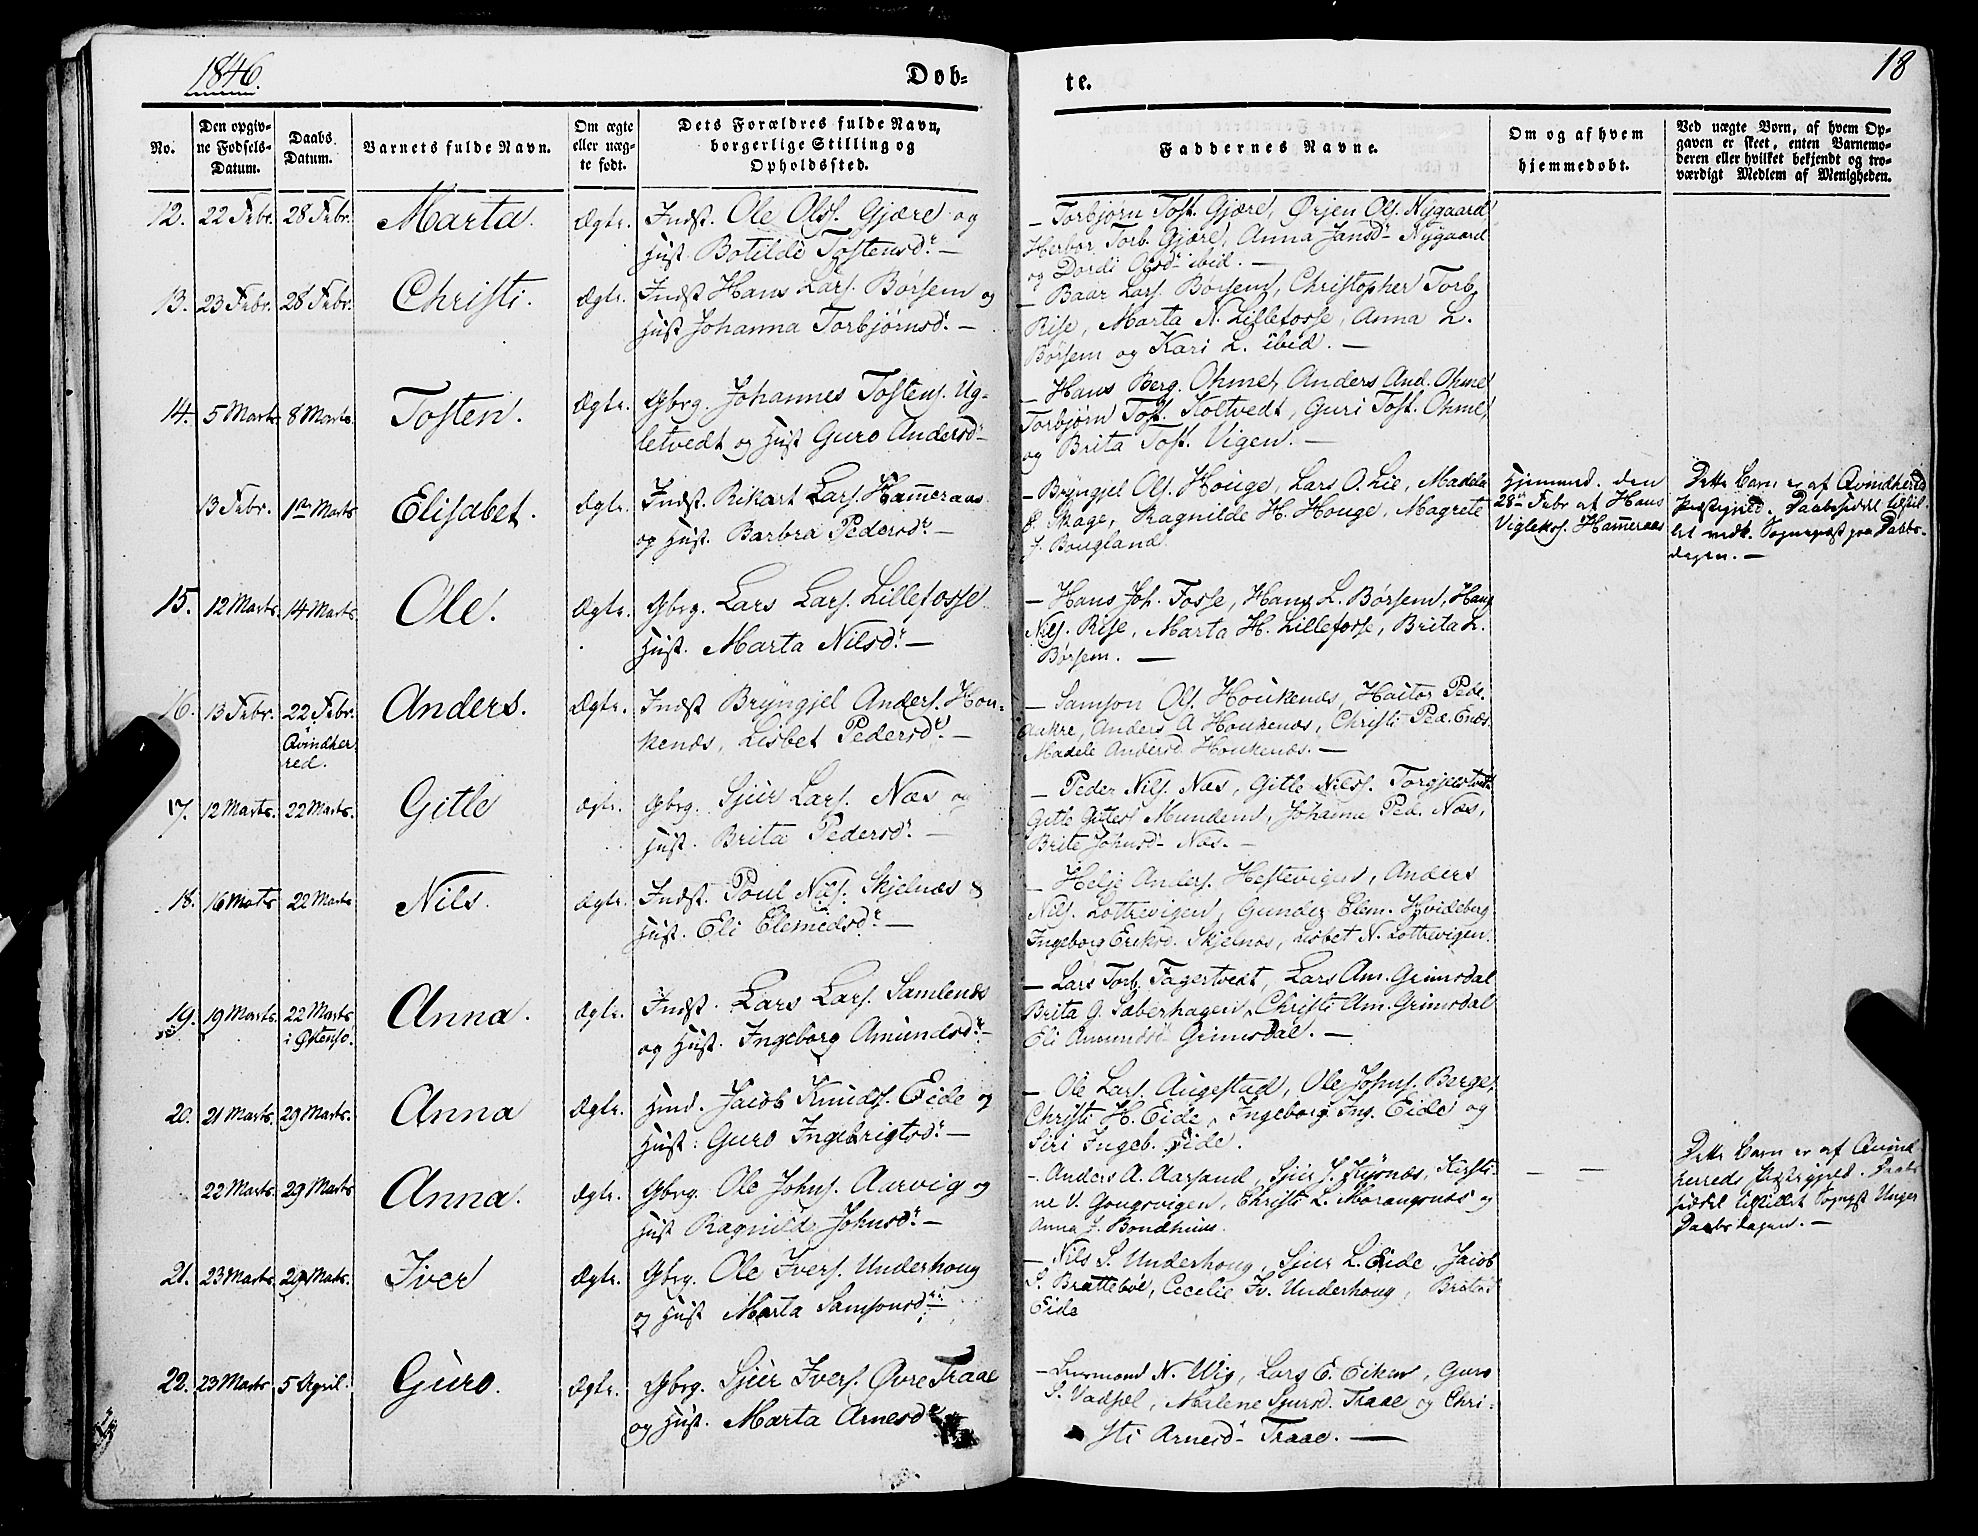 1846.
Døb-
te.
18
No.
Den opgiv-
ne Fødsels-
Datum.
Daabs
Datum.
Barnets fulde Navn.
Om ægte
eller uæg-
te født.
Dets Forældres fulde Navn,
borgerlige Stilling og
Opholdssted.
Faddernes Navne.
Om og af hvem
hjemmedøbt.
Ved uægte Børn, af hvem Op-
gaven er skeet, enten Barnemo-
deren eller hvilket bekjendt og tro-
værdigt Medlem af Menigheden.
12. 22 Febr. 28 Febr. Marta. Ægte. Indst. Ole Olss. Gjære og
Hust. Botilde Tostensdr. —
— Torbjørn Tost. Gjære, Ørjen Ols. Nygaard
Herbor Torb. Gjære, Anna Jansd. Nygaard
og Dordi Olsd. ibid. —
13. 23 Febr. 28 Febr. Christi. Ægte. Indst Hans Lars. Børsem og
Hust Johanna Torbjørnsd. —
— Baar Lars. Børsem, Christopher Torb.
Rise, Marta N. Lillefosse, Anna L.
Børsem og Kari L. ibid. —
14. 5 Marts 8 Marts. Tosten. Ægte. Gbrg. Johannes Tostens. Ug-
letvedt og Hust Guro Andersd. —
— Hans Berg. Ohme, Anders And. Ohme
Torbjørn Tost. Koltvedt, Guri Tost. Ohme,
og Brita Tost. Vigen. —
13 Febr. 1ste Marts Elisabet. Ægte. Indst. Rikart Lars. Hammeraas
og Hust. Barbra Pedersdr. —
— Bryngjel Ols. Houge, Lars O. Lie, Madela
Skage, Ragnilde H. Houge, Magrete
J. Bougland
Hjemmed. den
28de Febr af Hans
Vigleks. Hammeraas
Dette Barn er af Qvindherred
Præstegjeld. Daabssedel tilstil-
let vedk. Sognepræst paa Daabs-
dagen. —
15. 12 Marts. 14 Marts Ole. Ægte. Gbrg. Lars Lars. Lillefosse.
Hust. Marta Nilsdr. —
— Hans Joh. Fosse, Hans L. Børsem, Hans
Nils. Rise, Marta H. Lillefosse, Brita L.
Børsem. —
16. 13 Febr. 22 Febr. Anders. Ægte. Indst Bryngjel Anders. Hou-
Qvindher
red.
kenæs, Lisbet Pedersdr. —
— Samson Ols. Houkenæs, Haitor Ped.
Aakre, Anders A Houkenæs, Christi Ped. Enæs.
Madele Andersd Houkenæs. —
17. 12 Marts. 22 Marts. Gitle Ægte. Gbrg. Sjur Lars. Næs og
Hust. Brita Pedersdr. —
— Peder Nils. Næs, Gitle Nilss. Torgjelstvedt
Gitle Gitles Mundem, Johanna Ped. Næs,
Brite Johnsd. Næs. —
18. 16 Marts 22 Marts Nils. Ægte. Indst. Poul Nils. Skjelnæs &
Hust. Eli Elemedsdr. —
— Helje Anders. Hestevigen, Anders
Nils. Lottrevigen, Gunder Elem. Hvideberg
Ingeborg Eriksd. Skjelnæs, Lisbet N. Lottrevigen.
19. 19 Marts. 22 Marts Anna. Ægte. Indst. Lars Lars. Samlenæs
i Østensø.
og Hust. Ingeborg Amundsdr. —
— Lars Torb. Fagertvedt, Lars Am. Grimsdal
Brita G. Sæberhagen, Christi Am. Grimsdal
Eli Amundsd. Grimsdal. —
20. 21 Marts. 29 Marts. Anna Ægte. Huusm. Jacob Knuds. Eide og
Hust. Guro Ingebrigtsdr. —
— Ole Lars. Augestad, Ole Johns. Berge,
Christi H. Eide, Ingeborg Ing. Eide og
Siri Ingeb. Eide.
22 Marts. 29 Marts Anna. Ægte. Gbrg. Ole Johns. Aarvig og
Hust Ragnilde Johnsdr. —
— Anders A. Aarsand, Sjur J. Husnæs, Kirsti-
ne V. Gougsvigen, Christi L. Marangsnæs og
Anna J. Bondhuus.
— —
Dette Barn er af Qvind-
herreds Præstegjeld. Daabs
sedel tilstillet Sognpst Unger
Daabsdagen. —
21. 23 Marts. 29 Marts. Iver Ægte. Gbrg. Ole Ivers. Underhoug
og Hust Marta Samsonsdr. —
— Nils S. Underhoug, Sjur L. Eide, Jacob
S. Brattebøe, Cecelie Iv. Underhoug, Brita
Eide
22. 23 Marts 5 April. Guro. Ægte. Gbrg. Sjur Ivers. Øvre Traae
og Hust. Marta Arnesdr.
— N. Wig, Lars E. Eiken, Guro
S. Vadsel, Malene Sjursd. Traae og Chri-
sti Arnesd. Traae. —